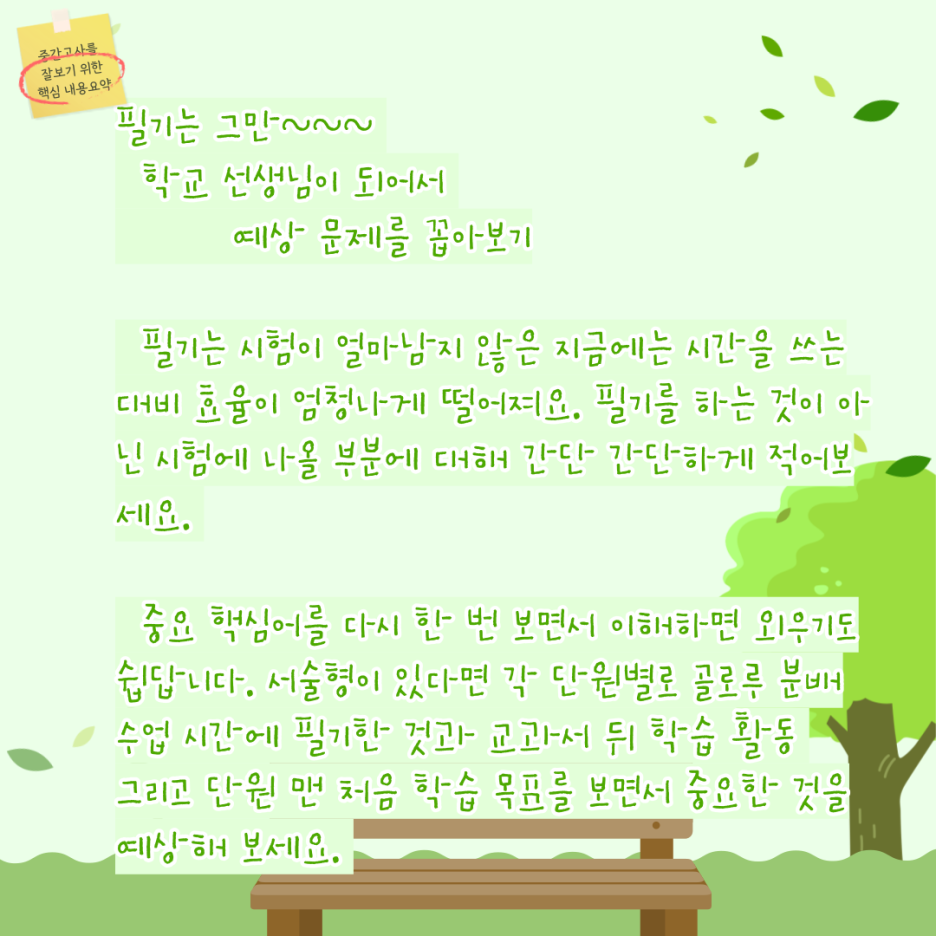 중간고사를
잘보기 위한
핵심 내용요약
필기는 그만~~~
학교 선생님이 되어서
예상 문제를 꼽아보기
필기는 시험이 얼마남지 않은 지금에는 시간을 쓰는
대비 효율이 엄청나게 떨어져요. 필기를 하는 것이 아
닌 시험에 나올 부분에 대해 간단 간단하게 적어보
세요.
중요 핵심어를 다시 한 번 보면서 이해하면 외우기도
쉽답니다. 서술형이 있다면 각 단원별로 골로루 분배
수업 시간에 필기한 것과 교과서 뒤 학습 활동
그리고 단원 맨 처음 학습 목표를 보면서 중요한 것을
예상해 보세요.